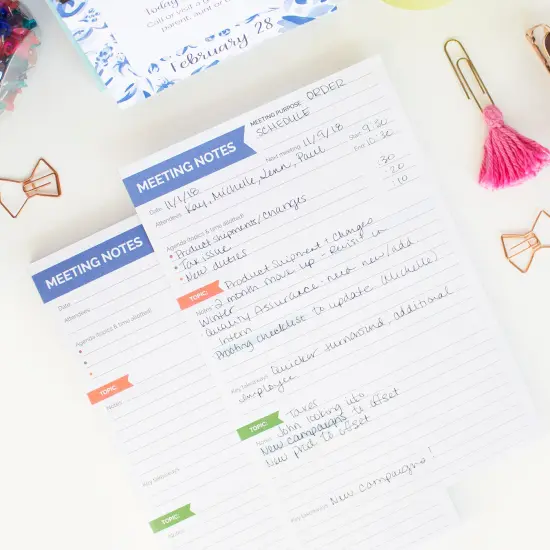 today
Call or visit a
parent, aunt or
February 28
MEETING NOTES
MEETING PURPOSE: ORDER
SCHEDULE
Date: 11/1/18 Next meeting: 11/9/18 Start: 9:30
Attendees: Kay, Michelle, Jenn, Paul End: 10:30
Agenda (topics & time allotted):
Product Shipments/changes :30
Tax issue :20
New duties :10
TOPIC: Product Shipment & Changes
Notes: 2 month move up - Revisit in
Winter
Quality Assurance - need new/add
Intern
Proofing checklist to update (Michelle)
Key takeaways: Quicker turnaround, additional
employee
TOPIC: Taxes
Notes: John looking into
New campaigns to offset
New prod. to offset
Key takeaways: New campaigns!
MEETING NOTES
Date:
Attendees:
Agenda (topics & time allotted):
TOPIC:
Notes:
Key takeaways:
TOPIC:
Notes: